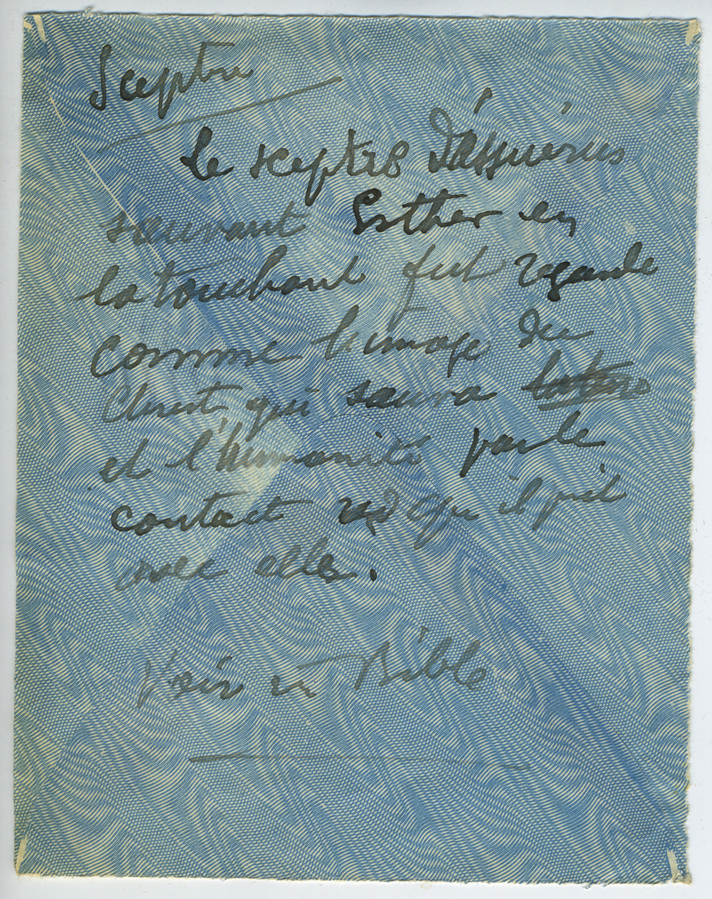 Sceptre
Le sceptre d'Assuérus
sauvant Esther en
la touchant fut regardé
comme l'image du
Christ qui sauva
et l'humanité par le
contact qu'il prit
avec elle.
Voir en Bible